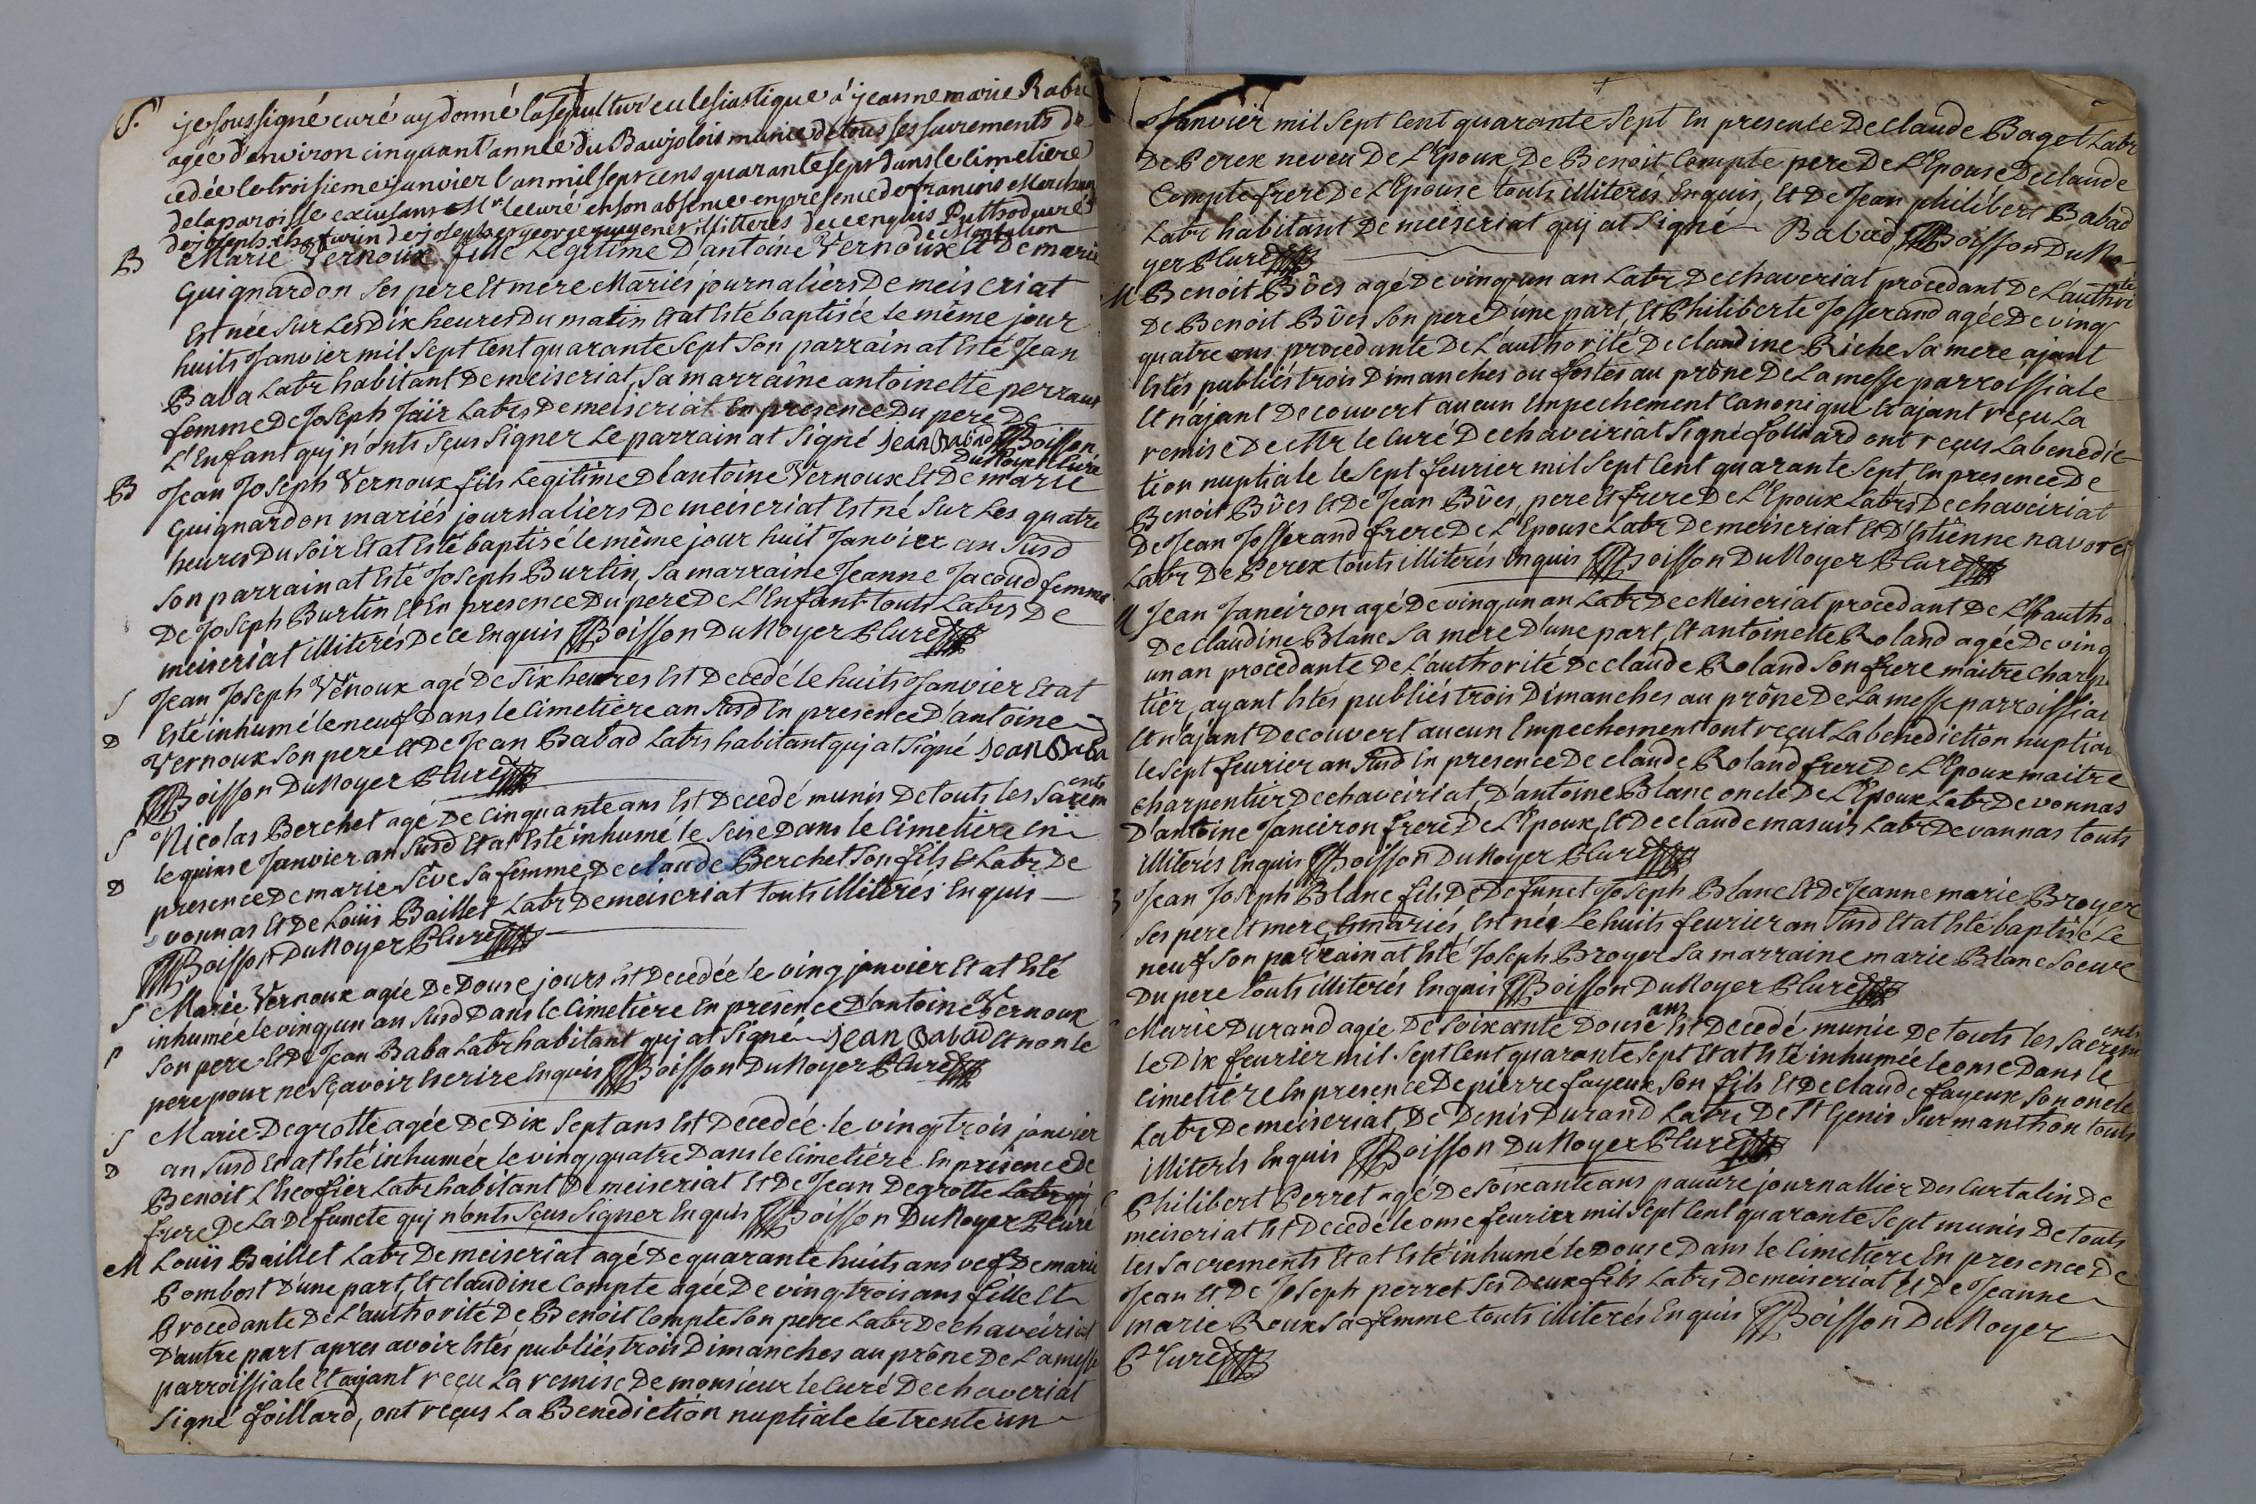 S. ije soussigné curé ay donné la sepulture eclesiastique á jeanne marie Rabu
agée d'environ cinquant année du Baujolois munie de tous ses sacrements de
cedée le troisieme janvier l'an mil sept cens quarante sept dans le cimetiere
de la paroisse Mr. le curé en son absence en presence de francois
de joseph george illitteres de ce enquis curé
de
B Marie Vernoux fille Legitime D'antoine Vernoux et De marie
Guignardon Ses pere Et mere Mariés journaliers De meiseriat
Est née Sur Les Dix heures Du matin Et at Esté baptisée le même jour
huits Janvier mil Sept Cent quarante Sept Son parrain at Esté Jean
Baba Labr habitant De meiseriat, Sa marraine antoinette perraut
femme De Joseph Jaïr Labrs De meiseriat En presence Du pere De
L'Enfant quj n'onts Sçus Signer Le parrain at Signé Jean Babad Boisson
DuNoyer Curé
B Jean Joseph Vernoux fils Legitime D'antoine Vernoux Et De marie
Guignardon mariés journaliers De meiseriat Est né Sur Les quatre
heures Du Soir Et at Esté baptisé le même jour huit Janvier an Susd
Son parrain at Esté Joseph Burtin, Sa marraine Jeanne Jacoud femme
De Joseph Burtin Et En presence Du pere De L'Enfant touts Labrs De
meiseriat illiterés De ce Enquis Boisson DuNoyer P Curé
S Jean Joseph Vernoux agé De Six heures Est Decedé le huits Janvier Et at
D Esté inhumé le neuf Dans le Cimetiere an Susd En presence D'antoine
Vernoux Son pere Et De Jean Babad Labrs habitant quj at Signé Jean Baba
Boisson DuNoyer P Curé
S Nicolas Berchet agé De Cinquante ans Est Decedé munis De touts les Sacrem
ents
D le quinse Janvier an Susd Et at Esté inhumé le Seise Dans le Cimetiere En
presence De marie Séve Sa femme, De claude Berchet Son fils Et Labr De
vonnas Et De Loüis Baillet Labr De meiseriat touts illiterés Enquis
Boisson DuNoyer P Curé
S Marie Vernoux agée De Douse jours Est Decedée le ving janvier Et at Esté
inhumée le ving, un an Susd Dans le Cimetiere En presence D'antoine Vernoux
Son pere Et De Jean Baba Labr habitant quj at Signé Jean Babad Et non le
pere pour ne Sçavoir Escrire Enquis Boisson DuNoyer P Curé
S Marie Degrotte agée De Dix Sept ans Est Decedée le ving trois janvier
D an Susd Et at Esté inhumée le ving quatre Dans le Cimetiére En presence De
Benoit L'Escofier Labr habitant De meiseriat Et De Jean Degrotte Labr quj
frere De La Defuncte quj n'onts Sçus Signer Enquis Boisson DuNoyer P Curé
M Loüis Baillet Labr De meiserîat agé De quarante huits ans vef De marie
Pombost D'une part, Et claudine Compte agée De ving trois ans fille Et
Procedante De L'authorité De Benoit Compte Son pere Labr De chaveiriat
D'autre part apres avoir Estés publiés trois Dimanches au prône De La messe
parroissiale Et ayant reçu La remise De monsieur le Curé De chaveriat
Signé foillard, ont reçus La Benediction nuptiale le trente un
Janvier mil Sept Cent quarante Sept En presence De claude Bagot Labr
De Perex neveu De L'Epoux, De Benoit Compte pere De L'Epouse De claude
Compte frere De L'Epouse touts illiterés Enquis, Et De Jean philibert Babad
Labr habitant De meiseriat quj at Signé Babad Boisson DuNo
yer P Curé
M Benoit Bôes agé De ving un an Labr De chaveriat procedant De L'authori
té
De Benoit Bôes Son pere D'une part, Et Philiberte Josserand agée De ving
quatre ans procedante De L'authorité De claudine Riche Sa mere ajant
Estés publiés trois Dimanches ou festes au prône De La messe parroissiale
Et n'ajant Decouvert aucun Empechement Canonique Et ajant reçu La
remise De Mr le Curé De chaveiriat Signé foillard ont reçus La benedic
tion nuptiale le Sept feurier mil Sept Cent quarante Sept, En presence De
Benoit Bôes Et De Jean Bôes, pere Et frere De L'Epoux Labrs De chaveiriat
De Jean Josserand frere De L'Epouse Labr De meiseriat Et D'Estienne navoret
Labr De Perex touts illiterés Enquis Boisson DuNoyer P Curé
M Jean Janeiron agé De ving un an Labr De Meiseriat procedant De L'autho
De claudine Blanc Sa mere D'une part, Et antoinette Roland agée De ving
un an procedante De L'authorité De claude Roland Son frere maitre charp
tier, ayant Estés publiés trois Dimanches au prône De La messe parroissial
Et n'ajant Decouvert aucun Empechement ont reçut La benediction nuptial
le Sept feurier an Susd En presence De claude Roland frere De L'Epoux maitre
charpentier De chaveiriat, D'antoine Blanc oncle De L'Epoux Labr De vonnas
D'antoine Janeiron frere De L'Epoux, Et De claude masuis Labr De vannas touts
illiterés Enquis Boisson DuNoyer P Curé
Jean Joseph Blanc fils De Defunct Joseph Blanc Et De Jeanne marie Broyer
Ses pere Et mere mariés, Est née Le huits feurier an Susd Et at Esté baptisé Le
neuf Son parrain at Esté Joseph Broyer Sa marraine marie Blanc Soeur
Du pere touts illiterés Enquis Boisson DuNoyer P Curé
Marie Durand agée De Soixante Douse ans Est Decedé munie De touts les Sacrem
ents
le Dix feurier mil Sept Cent quarante Sept Et at Esté inhumée le onse Dans le
Cimetiére En presence De pierre fayeux Son fils Et De claude fayeux Son oncle
Labr De meiseriat, De Denis Durand Labr De St Genis Sur manthon touts
illiterés Enquis Boisson DuNoyer P Curé
Philibert Perret agé De Soixante ans pauvre journallier Des Curtalin De
meiseriat Est Decedé le onse feurier mil Sept Cent quarante Sept munis De touts
les Sacrements Et at Esté inhumé le Douse Dans le Cimetiere En presence De
Jean Et De Joseph perret Ses Deux fils Labrs De meiseriat Et De Jeanne
marie Roux Sa femme touts illiterés Enquis Boisson DuNoyer
P Curé